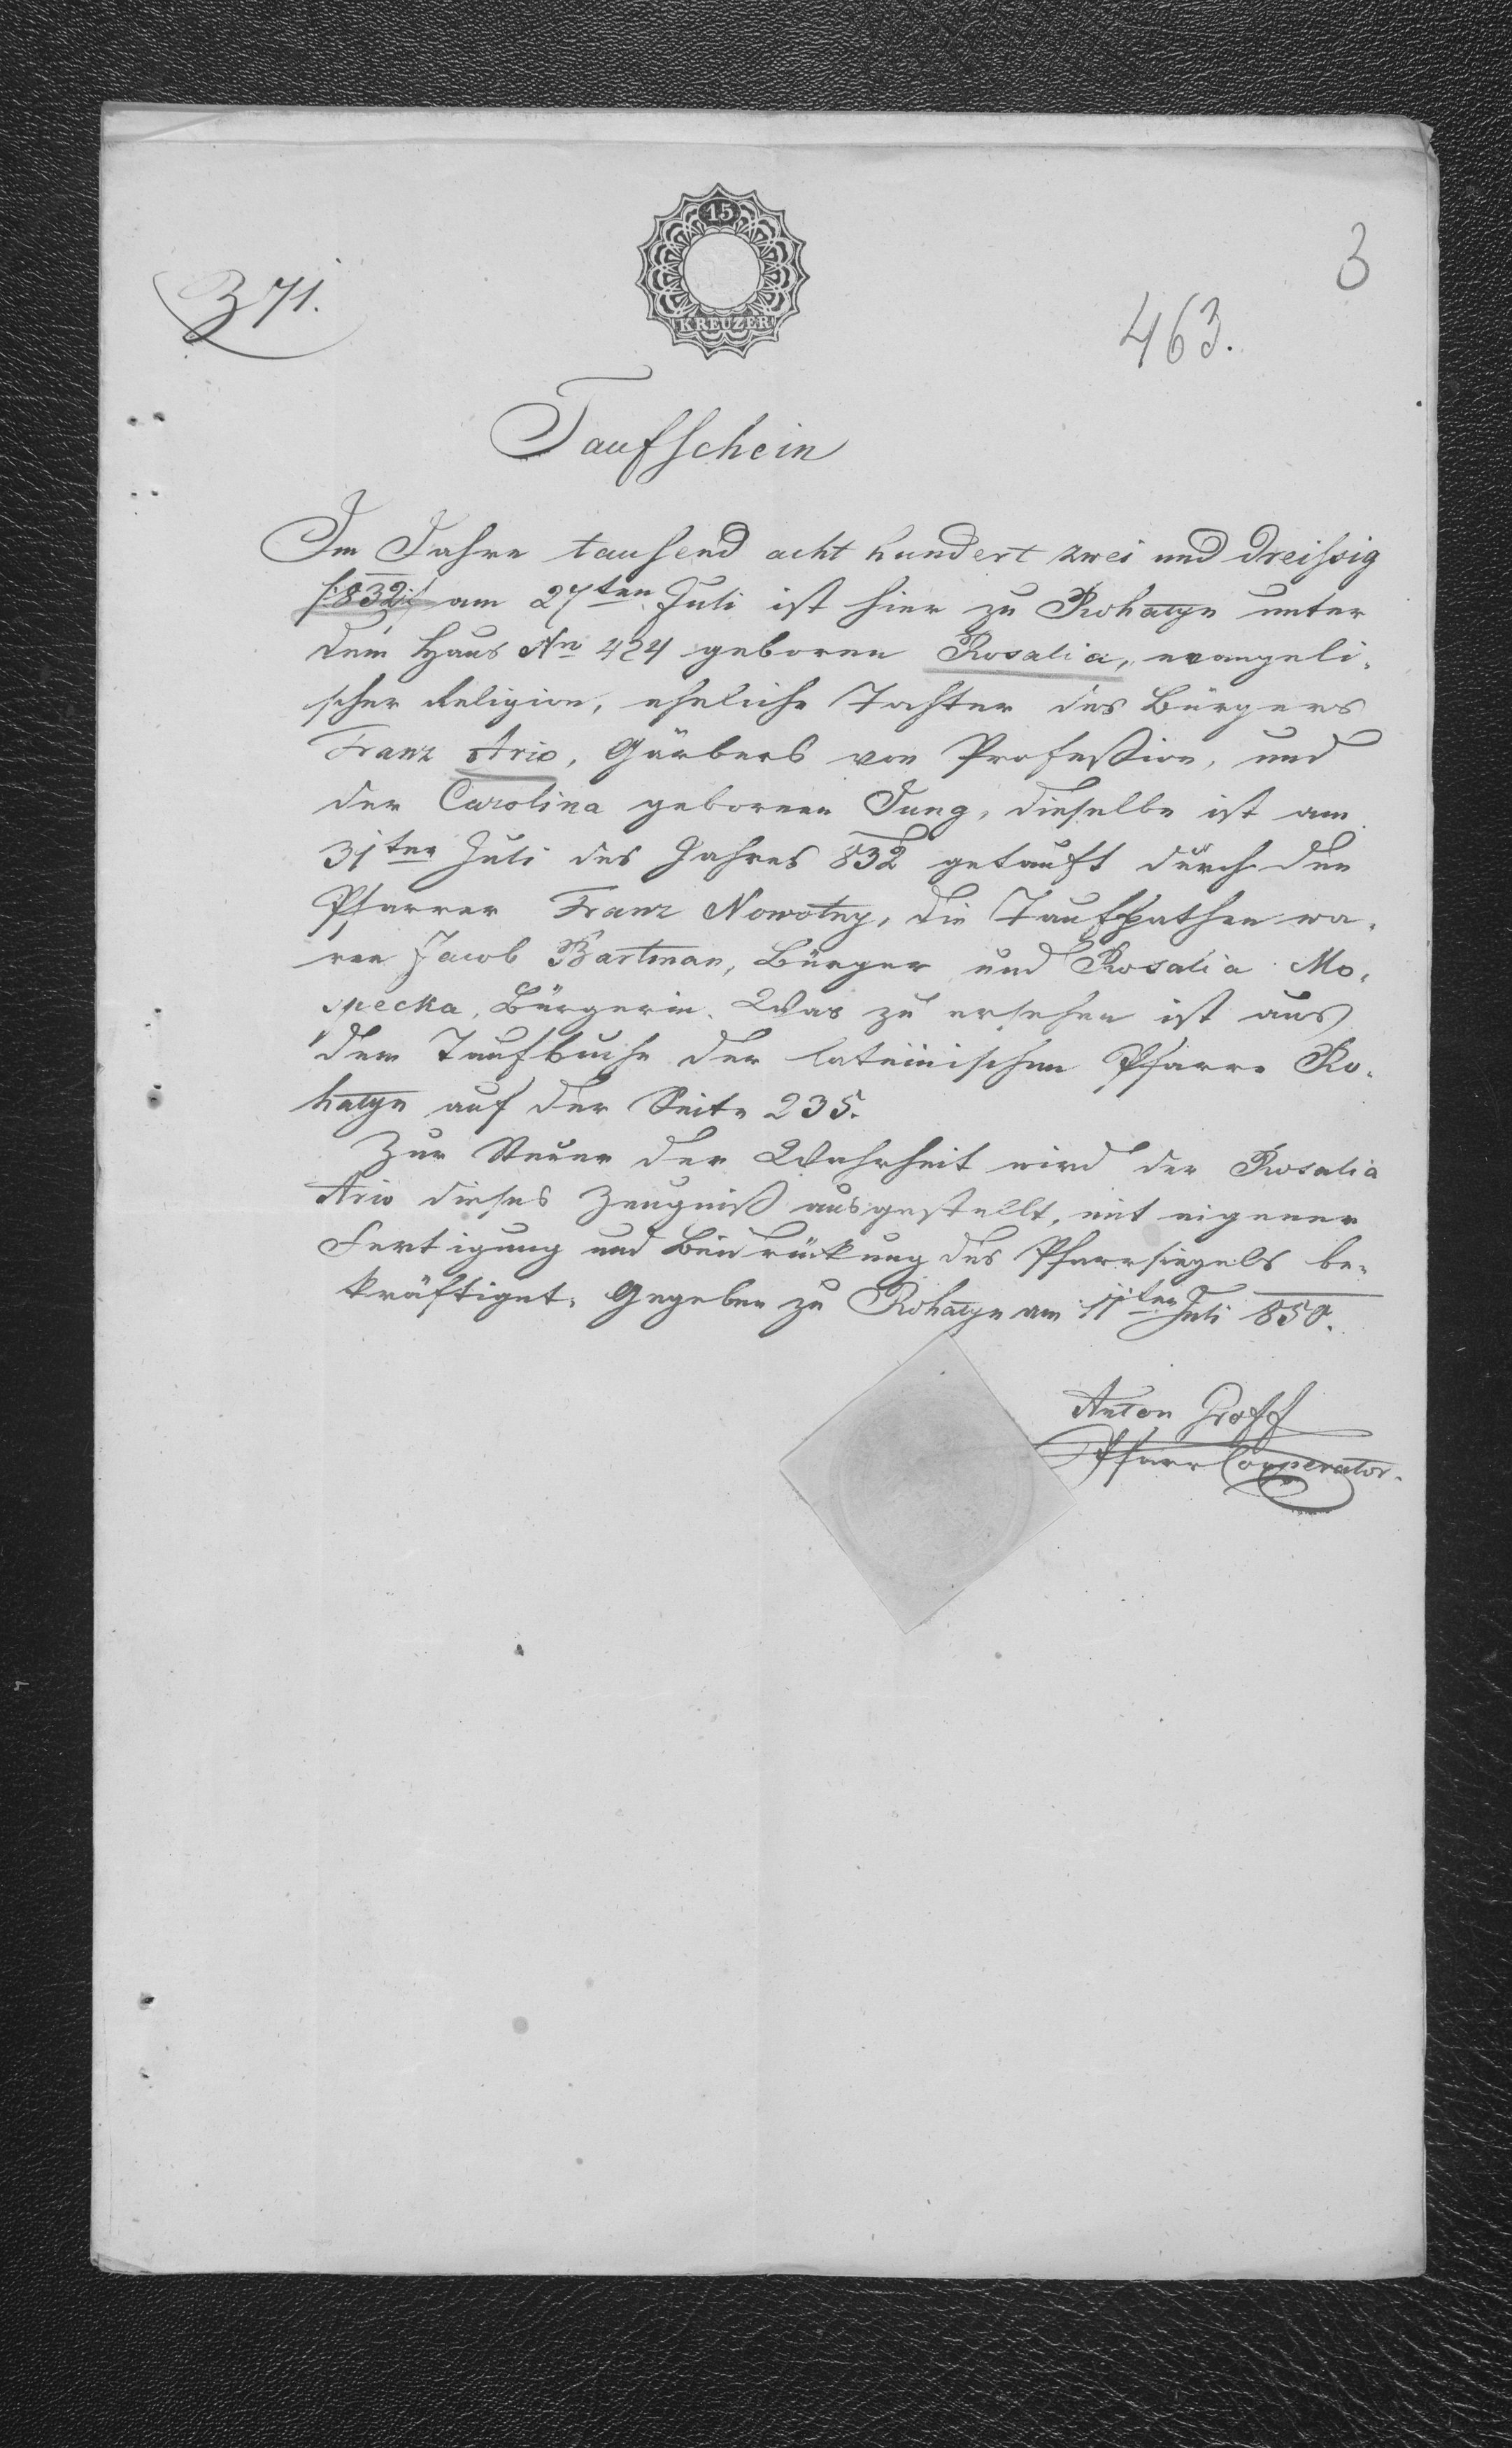 15
KREUZER
3
Z 71.
463.
Taufschein
Im Jahre tausend acht hundert zwei und dreißig
/:832:/ am 27ten Juli ist hier zu Rohatyn unter
dem Haus No 424 geboren Rosalia, evangeli-
scher Religion, eheliche Tochter des Bürgers
Franz Ario, Gärbers von Profession, und
der Carolina gebornen Jung, dieselbe ist am
31ten Juli des Jahres 832 getauft durch den
Pfarrer Franz Nowotny, die Taufpathen wa-
ren Jacob Bartman, Bürger und Rosalia Mo-
specka, Bürgerin. Was zu ersehen ist aus
dem Taufbuche der lateinischen Pfarre Ro-
hatyn auf der Seite 235.
Zur Steuer der Wahrheit wird der Rosalia
Ario dieses Zeugniß ausgestellt, mit eigener
Fertigung und Beidrückung des Pfarrsiegels be-
kräftiget. Gegeben zu Rohatyn am 11ten Juli 850.
Anton
Pfarr Cooperator.